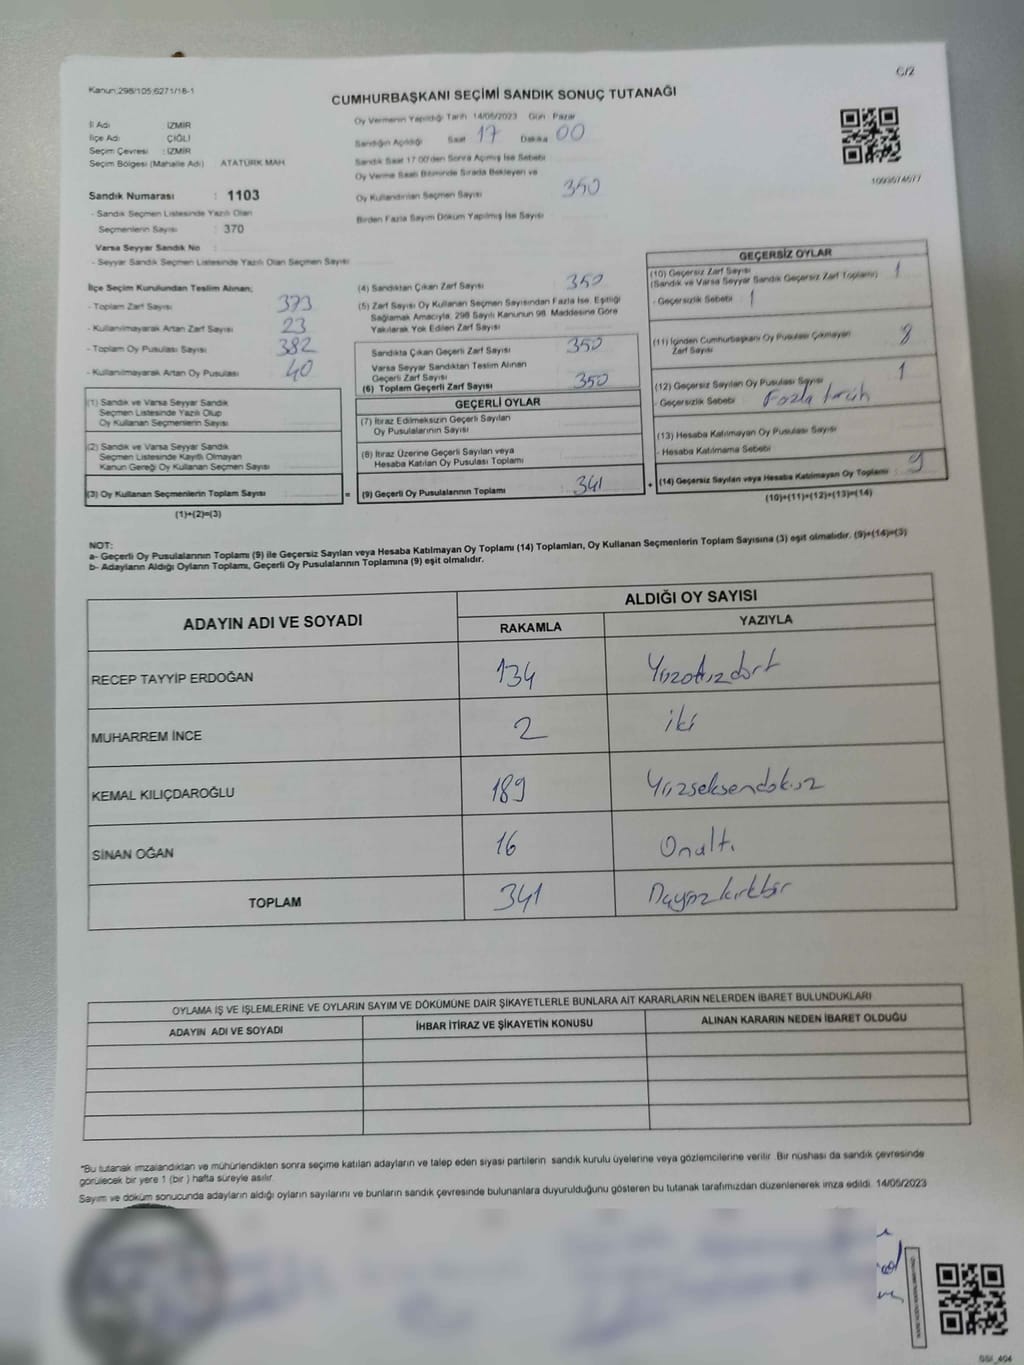 C/2
Kanun:298/105;6271/18-1
CUMHURBAŞKANI SEÇİMİ SANDIK SONUÇ TUTANAĞI
İl Adı : İZMİR
İlçe Adı : ÇİĞLİ
Seçim Çevresi : İZMİR
Seçim Bölgesi (Mahalle Adı) ATATÜRK MAH.
Sandık Numarası : 1103
- Sandık Seçmen Listesinde Yazılı Olan
Seçmenlerin Sayısı : 370
Varsa Seyyar Sandık No :
- Seyyar Sandık Seçmen Listesinde Yazılı Olan Seçmen Sayısı
Oy Vermenin Yapıldığı Tarih 14/05/2023 Gün Pazar
Sandığın Açıldığı Saat 17 Dakika 00
Sandık Saat 17:00'den Sonra Açılmış İse Sebebi
Oy Verme Saati Bitiminde Sırada Bekleyen ve
Oy Kullandırılan Seçmen Sayısı 350
Birden Fazla Sayım Döküm Yapılmış İse Sayısı
İlçe Seçim Kurulundan Teslim Alınan;
- Toplam Zarf Sayısı 373
- Kullanılmayarak Artan Zarf Sayısı 23
- Toplam Oy Pusulası Sayısı 382
- Kullanılmayarak Artan Oy Pusulası 40
(1) Sandık ve Varsa Seyyar Sandık
Seçmen Listesinde Yazılı Olup
Oy Kullanan Seçmenlerin Sayısı
(2) Sandık ve Varsa Seyyar Sandık
Seçmen Listesinde Kayıtlı Olmayan
Kanun Gereği Oy Kullanan Seçmen Sayısı
(3) Oy Kullanan Seçmenlerin Toplam Sayısı
(1)+(2)=(3)
(4) Sandıktan Çıkan Zarf Sayısı 350
(5) Zarf Sayısı Oy Kullanan Seçmen Sayısından Fazla İse, Eşitliği
Sağlamak Amacıyla, 298 Sayılı Kanunun 98. Maddesine Göre
Yakılarak Yok Edilen Zarf Sayısı
Sandıkta Çıkan Geçerli Zarf Sayısı 350
Varsa Seyyar Sandıktan Teslim Alınan
Geçerli Zarf Sayısı
(6) Toplam Geçerli Zarf Sayısı 350
GEÇERLİ OYLAR
(7) İtiraz Edilmeksizin Geçerli Sayılan
Oy Pusulalarının Sayısı
(8) İtiraz Üzerine Geçerli Sayılan veya
Hesaba Katılan Oy Pusulası Toplamı
= (9) Geçerli Oy Pusulalarının Toplamı : 341
GEÇERSİZ OYLAR
(10) Geçersiz Zarf Sayısı 1
(Sandık ve Varsa Seyyar Sandık Geçersiz Zarf Toplamı)
- Geçersizlik Sebebi : 1
(11) İçinden Cumhurbaşkanı Oy Pusulası Çıkmayan 8
Zarf Sayısı
(12) Geçersiz Sayılan Oy Pusulası Sayısı 1
- Geçersizlik Sebebi : Fazla tercih
(13) Hesaba Katılmayan Oy Pusulası Sayısı
- Hesaba Katılmama Sebebi
+ (14) Geçersiz Sayılan veya Hesaba Katılmayan Oy Toplamı 9
(10)+(11)+(12)+(13)=(14)
NOT:
a- Geçerli Oy Pusulalarının Toplamı (9) ile Geçersiz Sayılan veya Hesaba Katılmayan Oy Toplamı (14) Toplamları, Oy Kullanan Seçmenlerin Toplam Sayısına (3) eşit olmalıdır. (9)+(14)=(3)
b- Adayların Aldığı Oyların Toplamı, Geçerli Oy Pusulalarının Toplamına (9) eşit olmalıdır.
ADAYIN ADI VE SOYADI ALDIĞI OY SAYISI
RAKAMLA YAZIYLA
RECEP TAYYİP ERDOĞAN 134 Yüzotuzdört
MUHARREM İNCE 2 iki
KEMAL KILIÇDAROĞLU 189 Yüzseksendokuz
SİNAN OĞAN 16 Onaltı
TOPLAM 341 üçyüzkırkbir
OYLAMA İŞ VE İŞLEMLERİNE VE OYLARIN SAYIM VE DÖKÜMÜNE DAİR ŞİKAYETLERLE BUNLARA AİT KARARLARIN NELERDEN İBARET BULUNDUKLARI
ADAYIN ADI VE SOYADI İHBAR İTİRAZ VE ŞİKAYETİN KONUSU ALINAN KARARIN NEDEN İBARET OLDUĞU
*Bu tutanak imzalandıktan ve mühürlendikten sonra seçime katılan adayların ve talep eden siyasi partilerin sandık kurulu üyelerine veya gözlemcilerine verilir. Bir nüshası da sandık çevresinde
görülecek bir yere 1 (bir) hafta süreyle asılır.
Sayım ve döküm sonucunda adayların aldığı oyların sayılarını ve bunların sandık çevresinde bulunanlara duyurulduğunu gösteren bu tutanak tarafımızdan düzenlenerek imza edildi. 14/05/2023